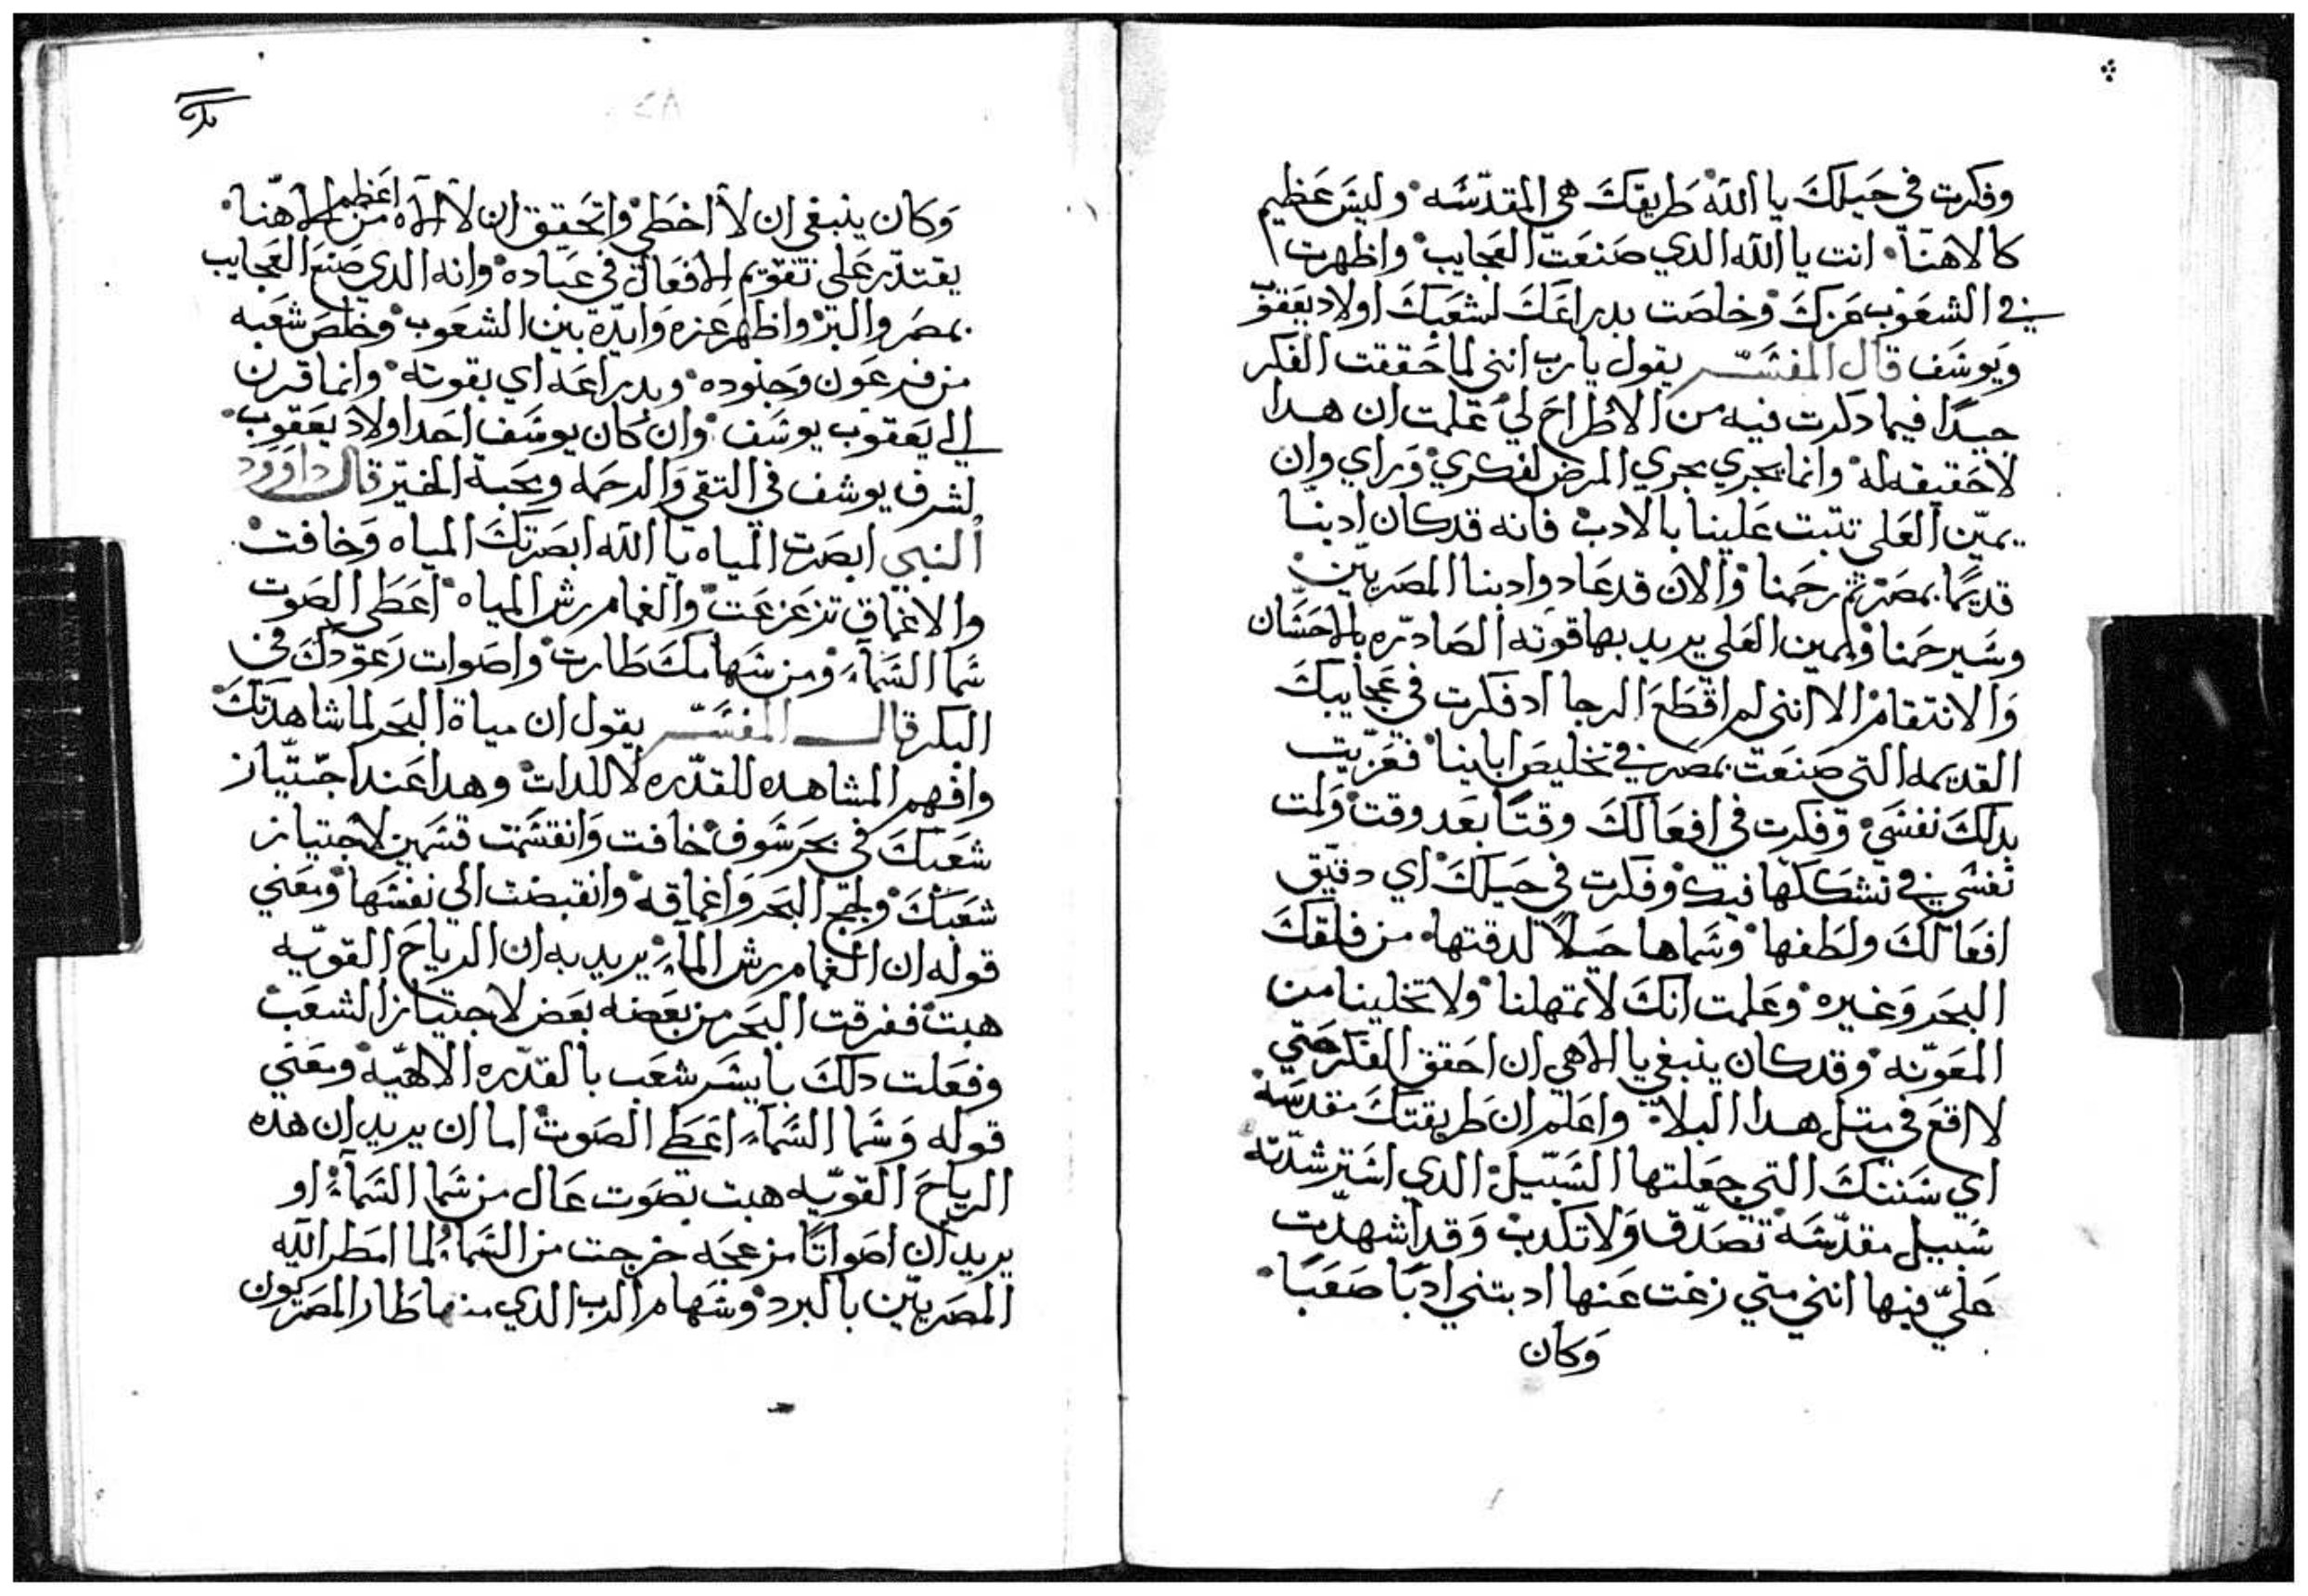 وفكرت في حيلك يا الله طريقك هي المقدسه وليس عظيم
كالاهنا انت يا الله الدي صنعت العجايب واظهرت
في الشعوب عزك وخلصت بدراعك لشعبك اولاد يعقوب
ويوسف قال المفسر يقول يارب انني لما حققت الفكر
جيدا فيما دكرت فيه من الاطراح لي علمت ان هدا
لا حقيقه له وانما يجري مجري المرض لفكري وراي وان
يمين العلي تتبت علينا بالادب فانه قد كان ادبنا
قديما بمصر ثم رحمنا والان قد عاد وادبنا المصريين
وسيرحمنا ويمين العلي يريد بها قوته الصادره بالاحسان
والانتقام الا انني لم اقطع الرجا اد فكرت في عجايبك
القديمه التي صنعت بمصر في تخليص ابابنا فعزيت
بدلك نفسي وفكرت في افعالك وقتا بعد وقت ولمت
نفسي في تشككها فيك وفكرت في حيلك اي دقيق
افعالك ولطفها وسماها حيلا لدقتها من فلقك
البحر وغيره وعلمت انك لا تمهلنا ولا تخلينا من
المعونه وقد كان ينبغي يا الاهي ان احقق الفكر حتي
لا اقع في متل هدا البلاء واعلم ان طريقتك مقدسه
اي سنتك التي جعلتها السبيل الدي استرشدته
سبيل مقدسه تصدق ولا تكدب وقد اشهدت
علي فيها انني متي زغت عنها ادبتني ادبا صعبا
وكان
وكان ينبغي ان لا اخطي واتحقق ان لا الاه اعظم من الاهنا
يقتدر علي تقويم الافعال في عباده وانه الدي صنع العجايب
بمصر والبر واظهر عزه وايده بين الشعوب وخلص شعبه
من فرعون وجنوده وبدراعه اي بقوته وانما قرن
الي يعقوب يوسف وان كان يوسف احد اولاد يعقوب
لشرف يوسف في التقي والرحمه ومحبة الخير قال داوود
النبي ابصرت المياه يا الله ابصرتك المياه وخافت
والاعماق تزعزعت والغمام رش المياه اعطي الصوت
سما السماء ومن سهامك طارت واصوات رعودك في
البكر قال المفسر يقول ان مياة البحر لما شاهدتك
وافهم المشاهده للقدره لا للدات وهدا عند اجتياز
شعبك في بحر سوف خافت وانقسمت قسمين لاجتياز
شعبك ولجج البحر واعماقه وانقبضت الي نفسها ومعني
قوله ان الغمام رش الماء يريد به ان الرياح القويه
هبت ففرقت البحر من بعضه بعض لاجتياز الشعب
وفعلت دلك بايسر شعب بالقدره الالهيه ومعني
قوله وسما السماء اعطي الصوت اما ان يريد ان هده
الرياح القويه هبت بصوت عال من سما السماء او
يريد ان اصواتا مزعجه خرجت من السماء لما امطر الله
المصريين بالبرد وسهام الرب الدي منها طار المصريون